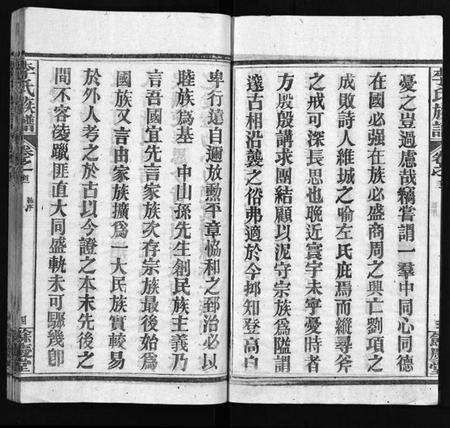 李氏族譜
憂之豈過慮哉竊嘗謂一羣中同心同德
在國必强在族必盛商周之興亡劉項之
成敗詩人維城之喻左氏庇焉而縱尋斧
之戒可深長思也晚近寰宇未寧憂時者
方殷殷講求團結顧以泥守宗族爲隘謂
遠古相沿襲之俗弗適於今抑知登高自
卑行遠自邇放勲平章協和之郅治必以
睦族爲基 中山孫先生創民族主義乃
言吾國宜先言家族次存宗族最後始爲
國族又言由家族擴爲一大民族實較易
於外人考之於古以今證之本末先後之
間不容淩躐匪直大同盛軌未可驟幾卽
李氏族譜
卷之
四